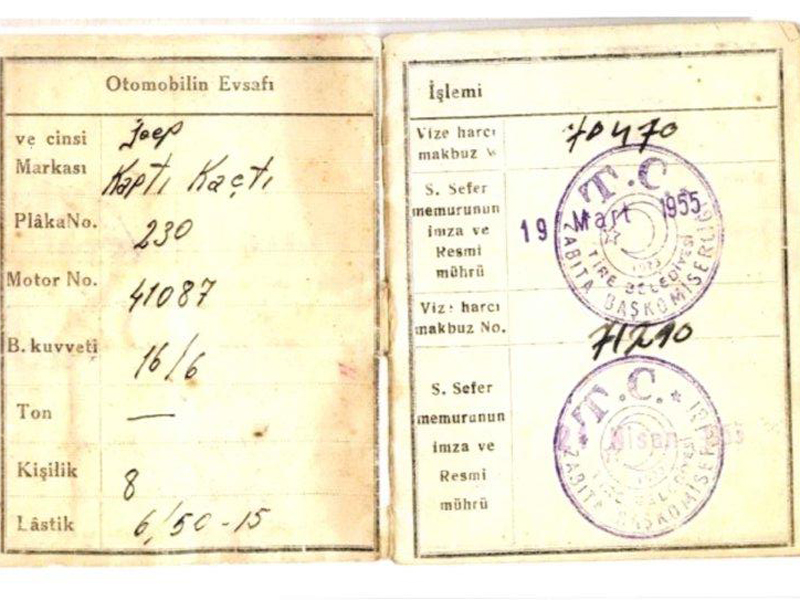 Otomobilin Evsafı
ve cinsi Jeep
Markası Kaptı Kaçtı
PlâkaNo. 230
Motor No. 41087
B. kuvveti 16/6
Ton —
Kişilik 8
Lâstik 6/50-15
İşlemi
Vize harcı
makbuz 70470
S. Sefer
memurunun
imza ve
Resmi
mührü
T.C.
19 Mart 1955
TİRE BELEDİYESİ
ZABITA BAŞKOMİSERLİĞİ
Vize harcı
makbuz No. 71290
S. Sefer
memurunun
imza ve
Resmi
mührü
T.C.
Nisan
TİRE BELEDİYESİ
ZABITA BAŞKOMİSERLİĞİ